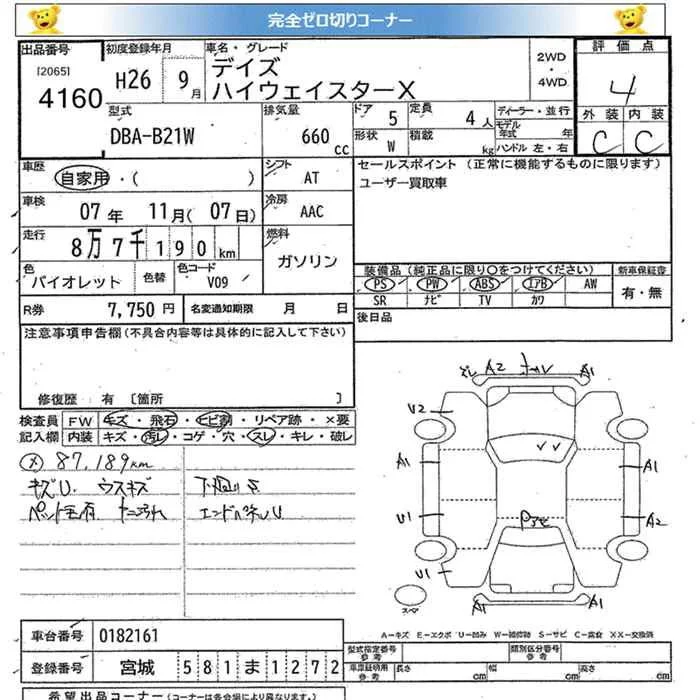 完全ゼロ切りコーナー
出品番号 初度登録年月 車名・グレード 評価点
[2065] 4160 H26 9月 デイズ 2WD・4WD 4
ハイウェイスターX
型式 排気量 ドア 5 定員 4人 ディーラー・並行 外装 内装
DBA-B21W 660cc 形状 W 積載 kg モデル年式 年 C C
ハンドル 左・右
車歴 自家用・( ) シフト AT セールスポイント (正常に機能するものに限ります)
ユーザー買取車
車検 07年 11月(07日) 冷房 AAC
走行 8万7千190km 燃料 ガソリン
色 バイオレット 色替 色コード V09 装備品(純正品に限り○をつけてください) 新車保証書
PS PW ABS エアB AW 有・無
SR ナビ TV カワ
R券 7,750円 名変通知期限 月 日 後日品
注意事項申告欄(不具合内容等は具体的に記入して下さい)
修復歴 有 〔箇所 〕
検査員 FW キズ・飛石・ヒビ割・リペア跡・×要
記入欄 内装 キズ・汚レ・コゲ・穴・スレ・キレ・破レ
メ 87,189km
キズU ウスキズ
A2 A1
U2
A1 A1
U1 A2
U1
A1 A1
A-キズ E-エクボ U-凹み W-補修跡 S-サビ C-腐食 XX-交換済
車台番号 0182161 型式指定番号 参考 類別区分番号 参考
登録番号 宮城 581ま1272 車庫証明用 参考 長さ cm 幅 cm 高さ cm
希望出品コーナー(コーナーは各会場により異なります。)